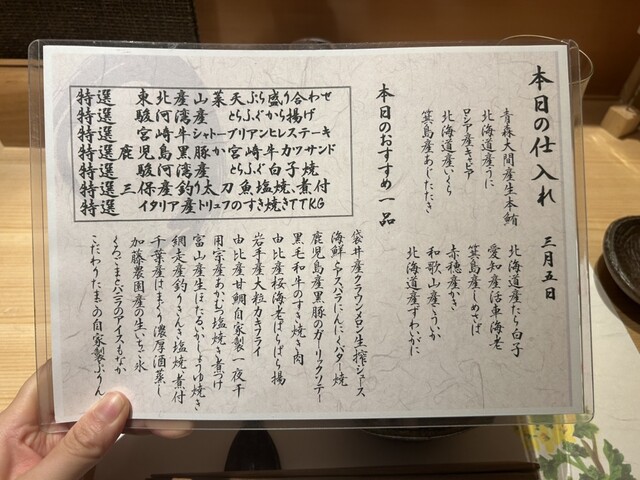 本日の仕入れ 三月五日
青森大間産生本鮪
北海道産うに
ロシア産キャビア
北海道産いくら
箕島産あじたたき
北海道産たら白子
愛知産活車海老
箕島産しめさば
赤穂産かき
和歌山産こういか
北海道産ずわいがに
本日のおすすめ一品
特選 東北産山菜天ぷら盛り合わせ
特選 駿河湾産 とらふぐから揚げ
特選 宮崎牛シャトーブリアンヒレステーキ
特選 鹿児島黒豚か宮崎牛カツサンド
特選 駿河湾産 とらふぐ白子焼
特選 三保産釣り太刀魚塩焼、煮付
特選 イタリア産トリュフのすき焼きTTKG
袋井産クラウンメロン生搾ジュース
海鮮とアスパラにんにくバター焼
鹿児島産黒豚のガーリックソテー
黒毛和牛のすき焼き肉
由比産桜海老ぱらぱら揚
岩手産大粒カキフライ
由比産甘鯛自家製一夜干
用宗産あかむつ塩焼き煮つけ
富山産生ほたるいかしょうゆ焼き
網走産釣りきんき塩焼、煮付
千葉産はまぐり濃厚酒蒸し
加藤農園産の生いちご氷
くろごまとバニラのアイスもなか
こだわりたまごの自家製ぷりん